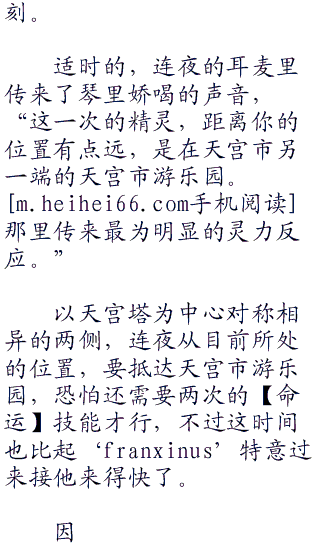 刻。
适时的，连夜的耳麦里
传来了琴里娇喝的声音，
“这一次的精灵，距离你的
位置有点远，是在天宫市另
一端的天宫市游乐园。
[m.heihei66.com手机阅读]
那里传来最为明显的灵力反
应。”
以天宫塔为中心对称相
异的两侧，连夜从目前所处
的位置，要抵达天宫市游乐
园，恐怕还需要两次的【命
运】技能才行，不过这时间
也比起‘franxinus’特意过
来接他来得快了。
因